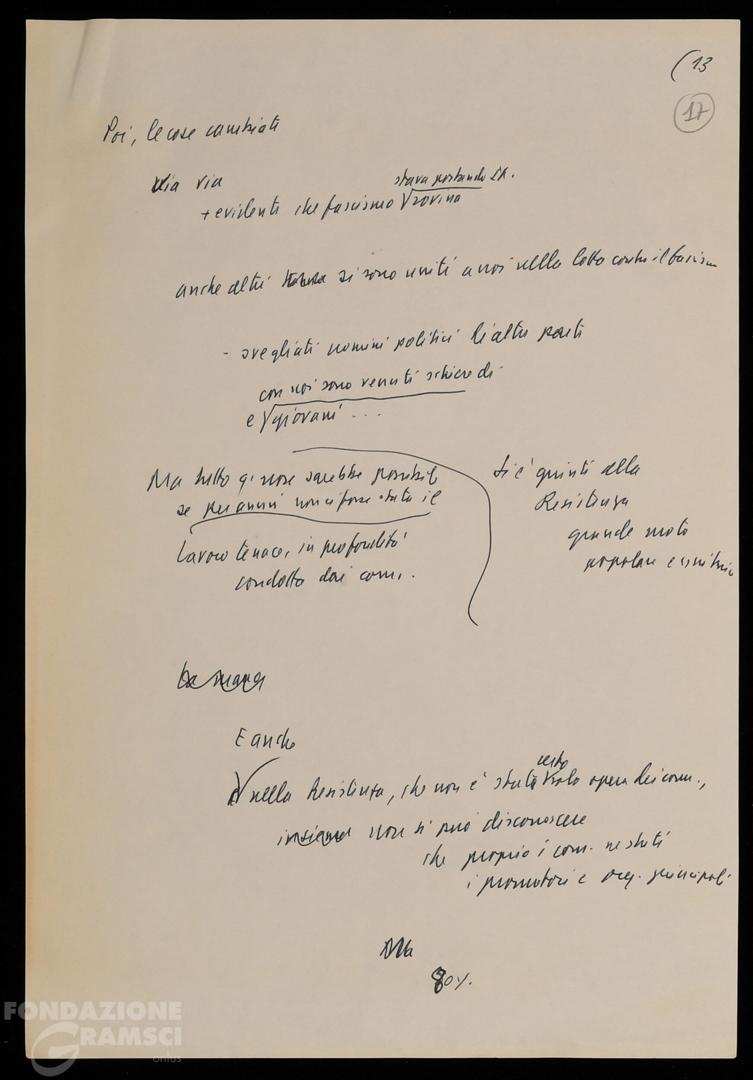 (13
17
Poi, le cose cambiate
Via via
stava portando It.
+ evidente che fascismo rovina
anche altri si sono uniti a noi nella lotta contro il fascism
- svegliati uomini politici di altri partiti
con noi sono venuti schiere di
e giovani ...
Ma tutto q. non sarebbe possibil
se per anni non ci fosse stato il
lavoro tenace, in profondità
condotto dai com.
Si è giunti alla
Resistenza
grande moto
popolare e unitario
E anche
certo
nella Resistenza, che non è stata solo opera dei com.,
non si può disconoscere
che proprio i com. ne stati
i promotori e org. principali
Alla
80%.
FONDAZIONE
GRAMSCI
onlus